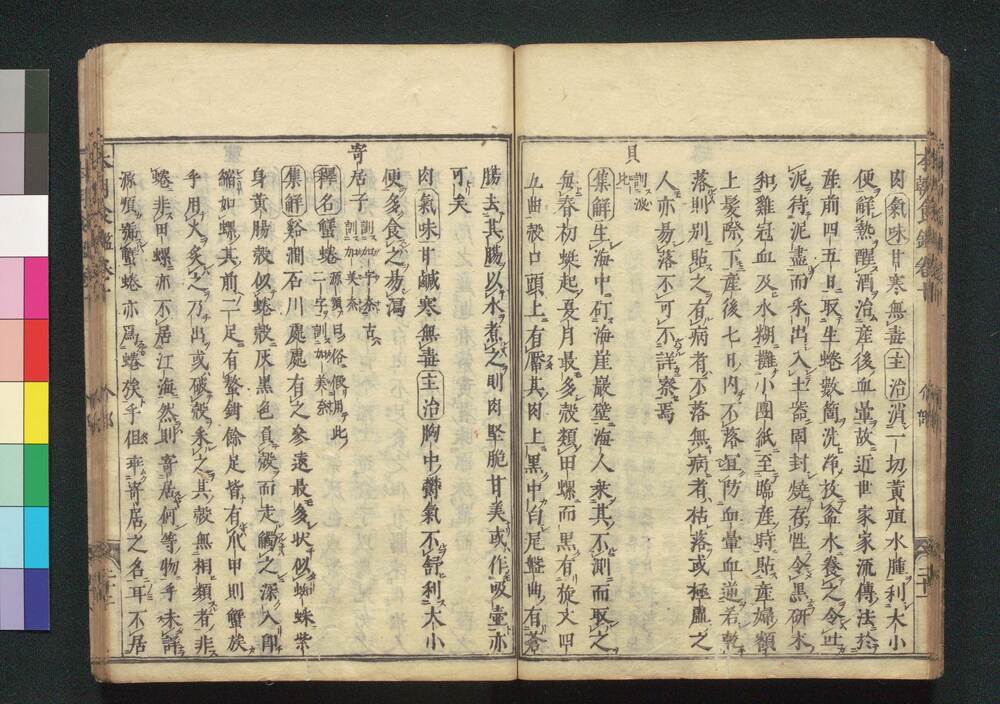 肉氣味甘寒無毒主治消一切黃疽水腫利大小
便解熱醒酒治產後血暈故近世家家流傳法於
産前四五日取生蜷數箇洗淨放盆水養之令吐
泥待泥盡而采出入土器固封燒存性令黑研末
和雞冠血及水糊攤小團紙至臨産時貼産婦額
上髮際下產後七日內不落宜防血暈血逆若暫
落則別貼之有病者不落無病者枯落或極虛之
人亦易落不可不詳察焉
貝
訓波比
集解生海中何海崖巖壁海人采其不測而取之
每春初蜒起夏月最多殼類田螺而黑有旋文四
五曲殼口頭上有厴其肉上黑中白尾盤曲有蒼
腸去其腸以水煮之則肉堅脆甘美或作吸壷亦
可矣
肉氣味甘鹹寒無毒主治胸中鬱氣不舒利大小
便多食之易瀉
寄居子訓加宇奈古訓加美奈
釋名蟹蜷二字訓加美奈源順曰俗假用此
集解谿澗石川處處有之參遠最多狀似蜘蛛紫
身黃腸殼似蜷殼灰黑色負殼而走觸之深入卽
縮如螺其前二足有螯鉗餘足皆有爪甲則蟹族
乎用火炙之乃出或破殼采之其殼無相類者非
蜷非田螺亦不居江海然則寄居何等物乎未詳
源順號蟹蜷亦爲蜷族乎但乖寄居之名耳不居